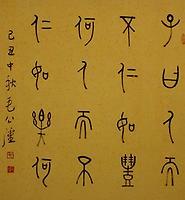 子曰人而
不仁如豊
何人而不
仁如樂何
己丑中秋毛公